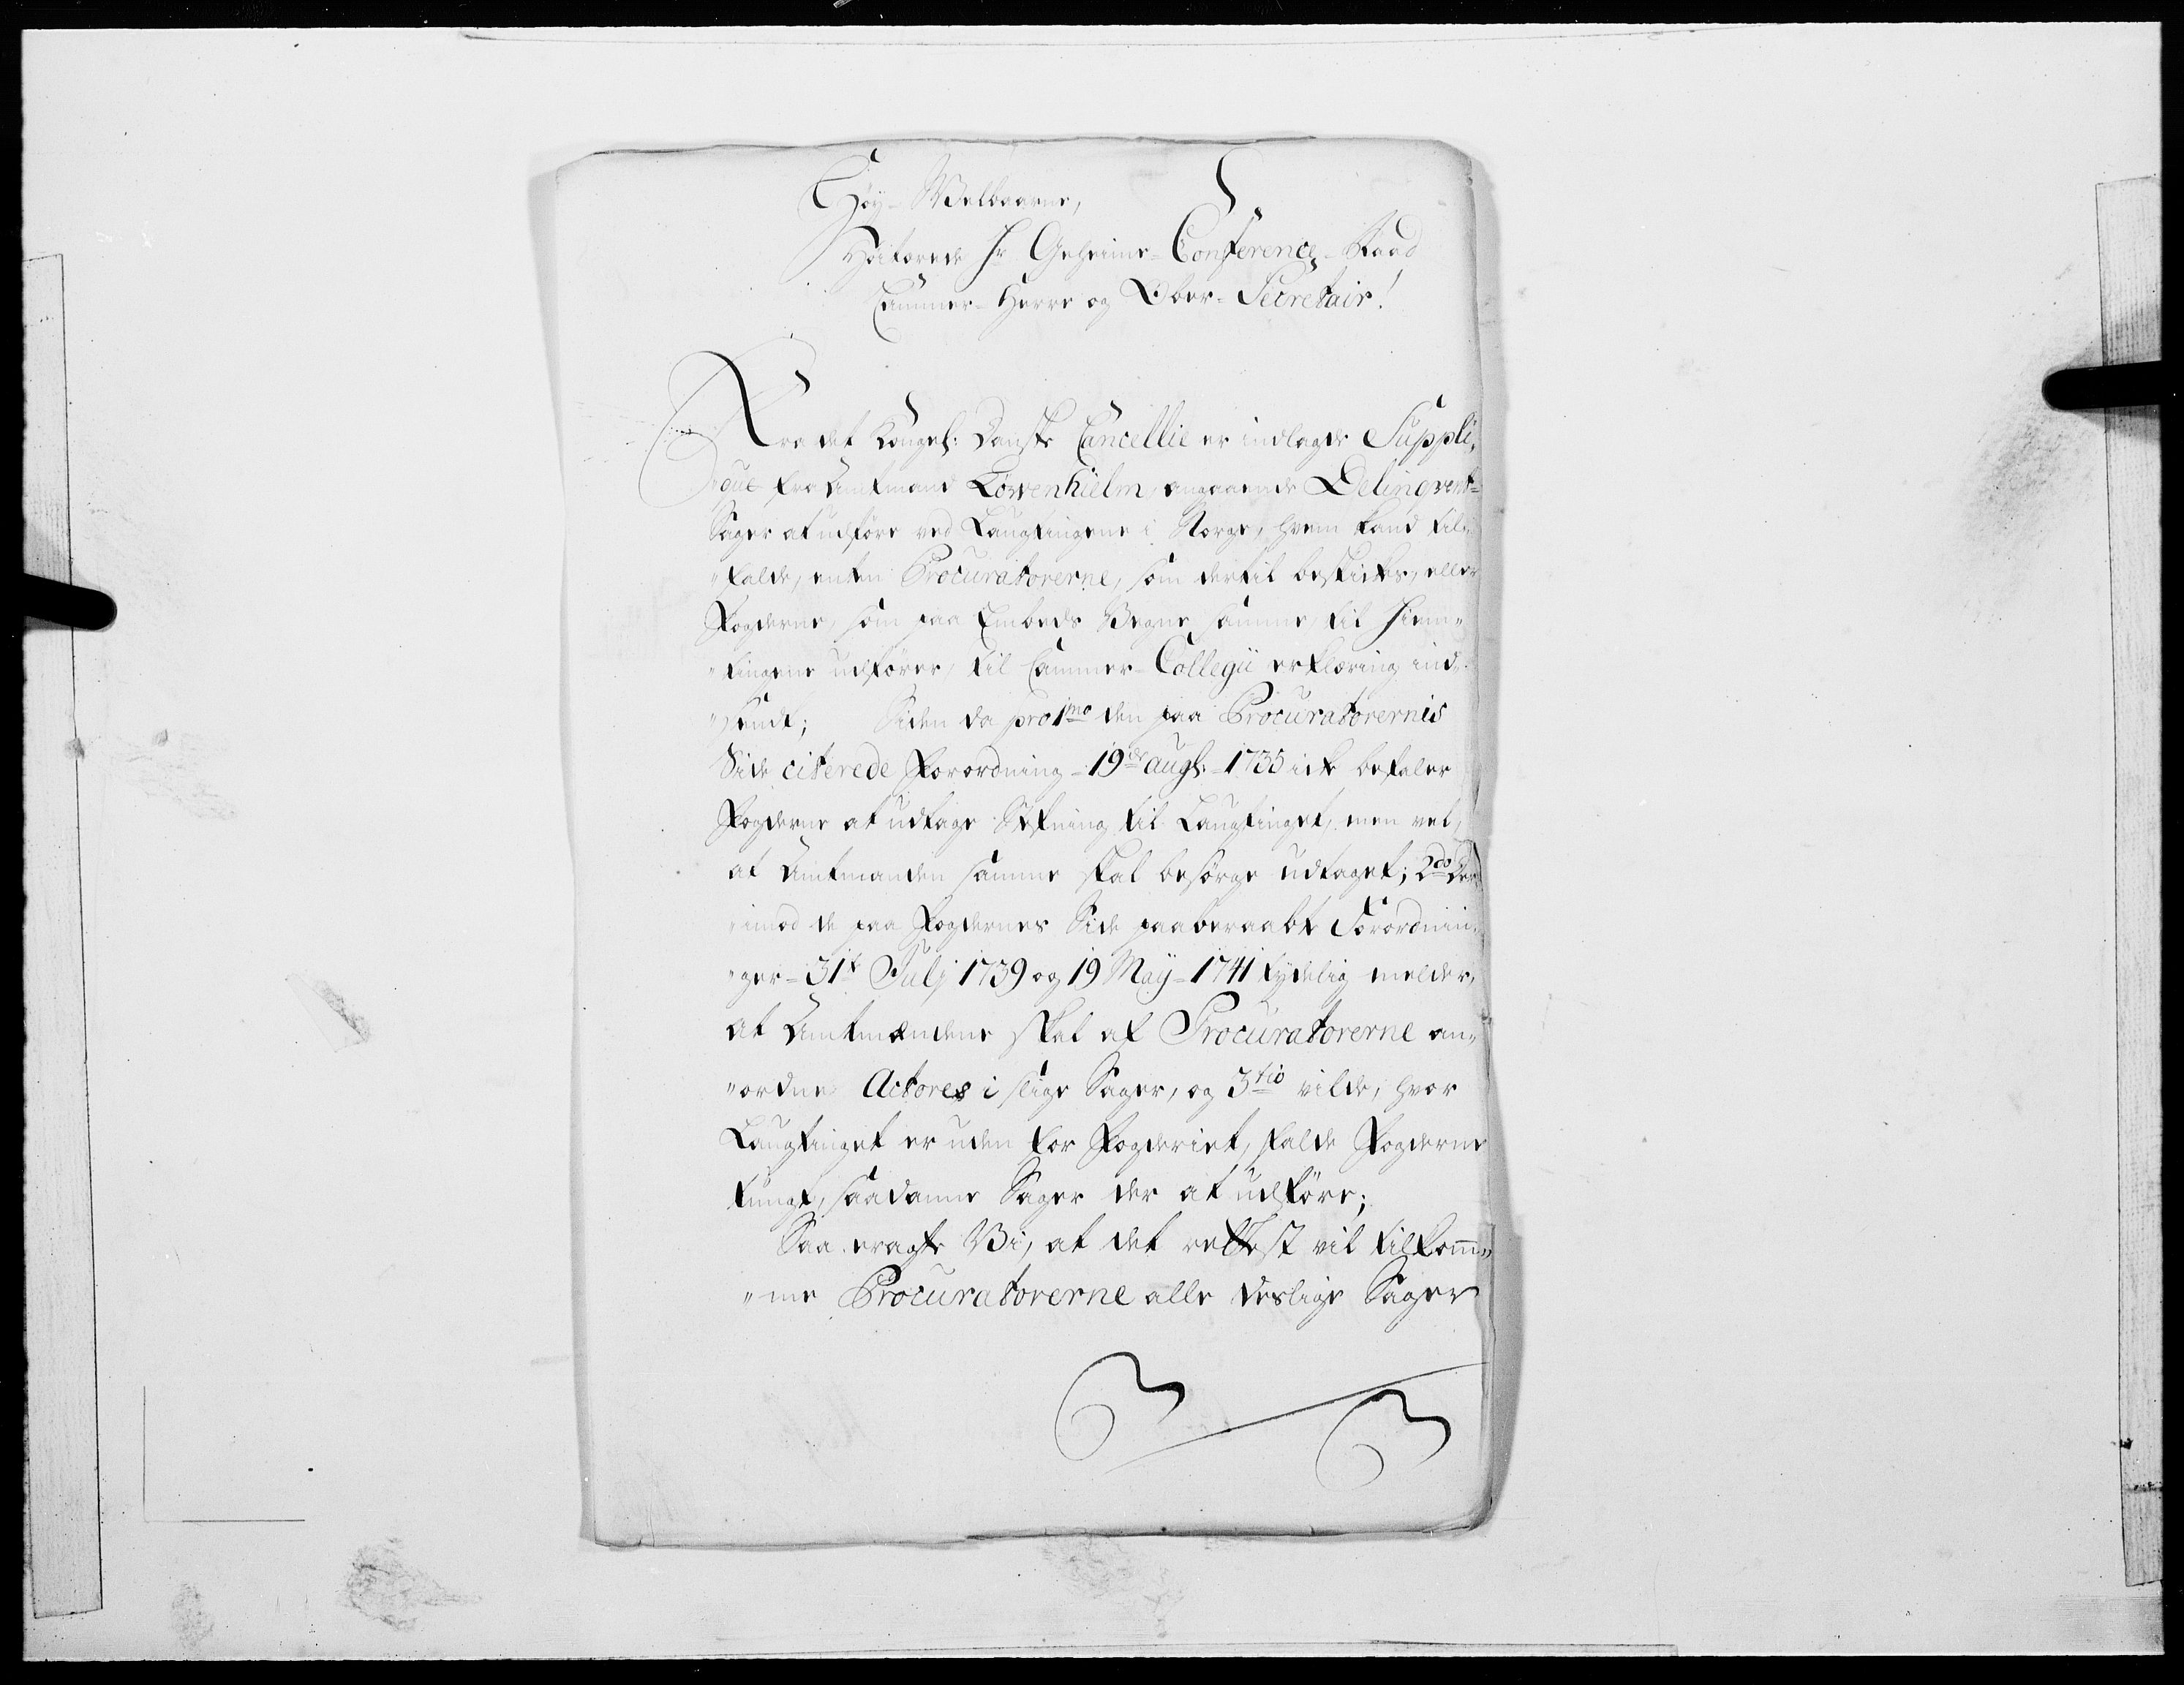 Høy-Welbaarne,
Høitærede Hr Geheime-Conference-Raad
Cammer-Herre og Ober-Secretair!
Fra det Kongel: Danske Cancellie er indlagde Suppli-
"que fra Amtmand Løwenhielm, angaaende Delinqvent-
Sager at udføre ved Laugtingene i Norge, hvem kand til-
"falde, enten Procuratorerne, som dertil beskikkes, eller
Fogderne, som paa Embeds Vegne samme til Hiem-
"tingene udfører, til Cammer-Collegii erklæring ind-
"sendt; Siden da pro 1mo den paa Procuratorernes
Side citerede Forordning-19de augs:-1735 ikke befaler
Fogderne at udtage Stefning til Laugtinget, men vel,
at Amtmanden samme skal besørge udtaget; 2do Der-
"imod de paa Fogdernes Side paaberaabte Forordnin-
"ger-31te Julj 1739 og 19 Maij-1741 tydelig melder,
at Amtmændene skal af Procuratorerne an-
"ordne Actores i slige Sager, og 3tio vilde, hvor
Laugtinget er uden for Fogderiet, falde Fogderne
tungt, saadanne Sager der at udføre;
Saa eragte Vi, at det rettest vil tilkom-
"me Procuratorerne alle deslige Sager